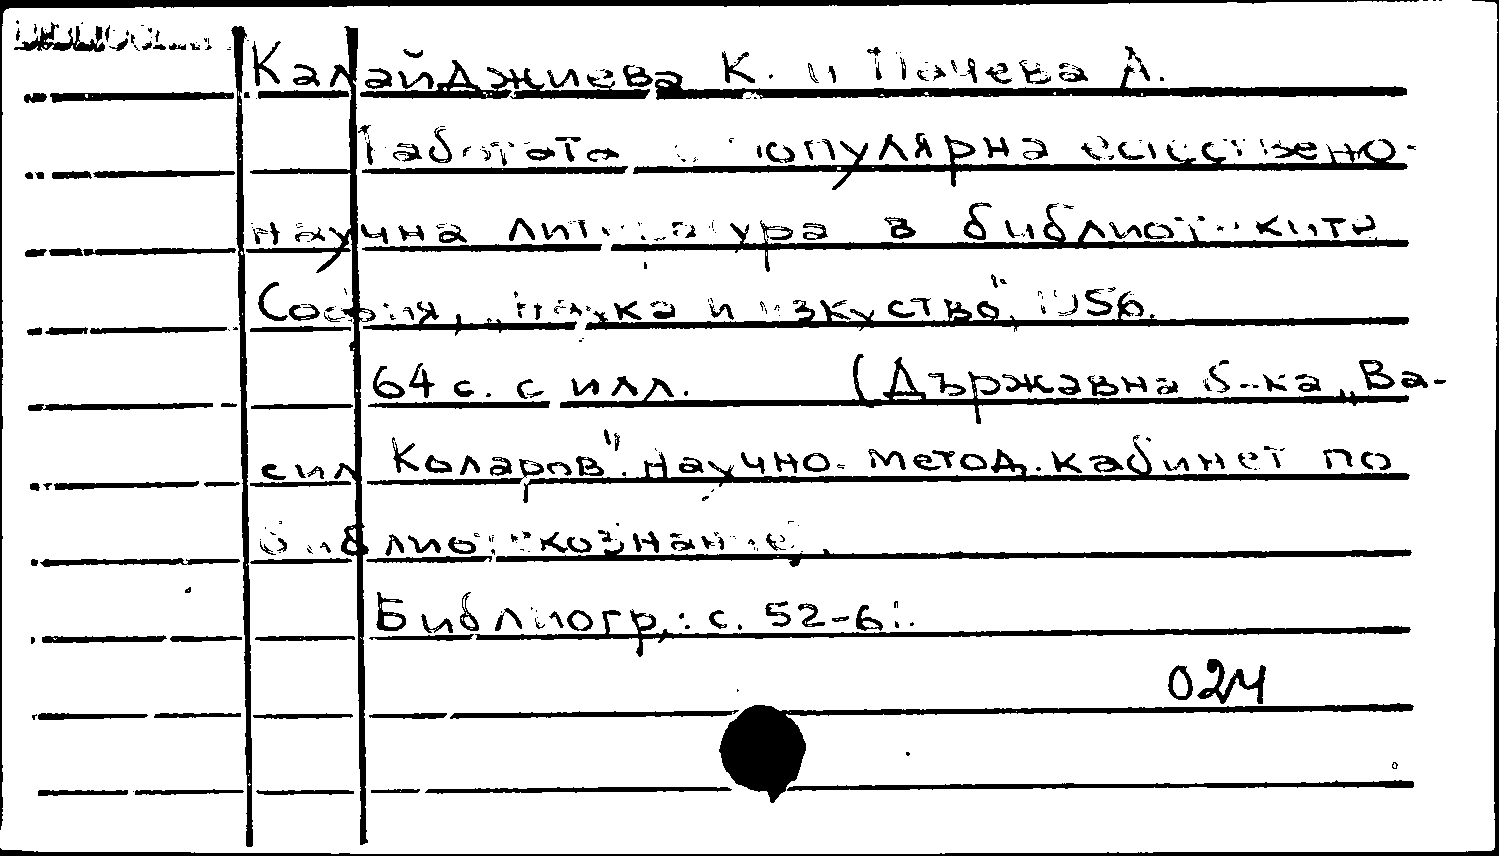 Калайджиева К. и Пачева А.
Работата с популярна естествено-
научна литература в библиотеките
София, „Наука и изкуство", 1956.
64 с. с илл. (Държавна б-ка „Ва-
сил Коларов". Научно-метод. кабинет по
библиотекознание).
Библиогр.: с. 52-61.
024